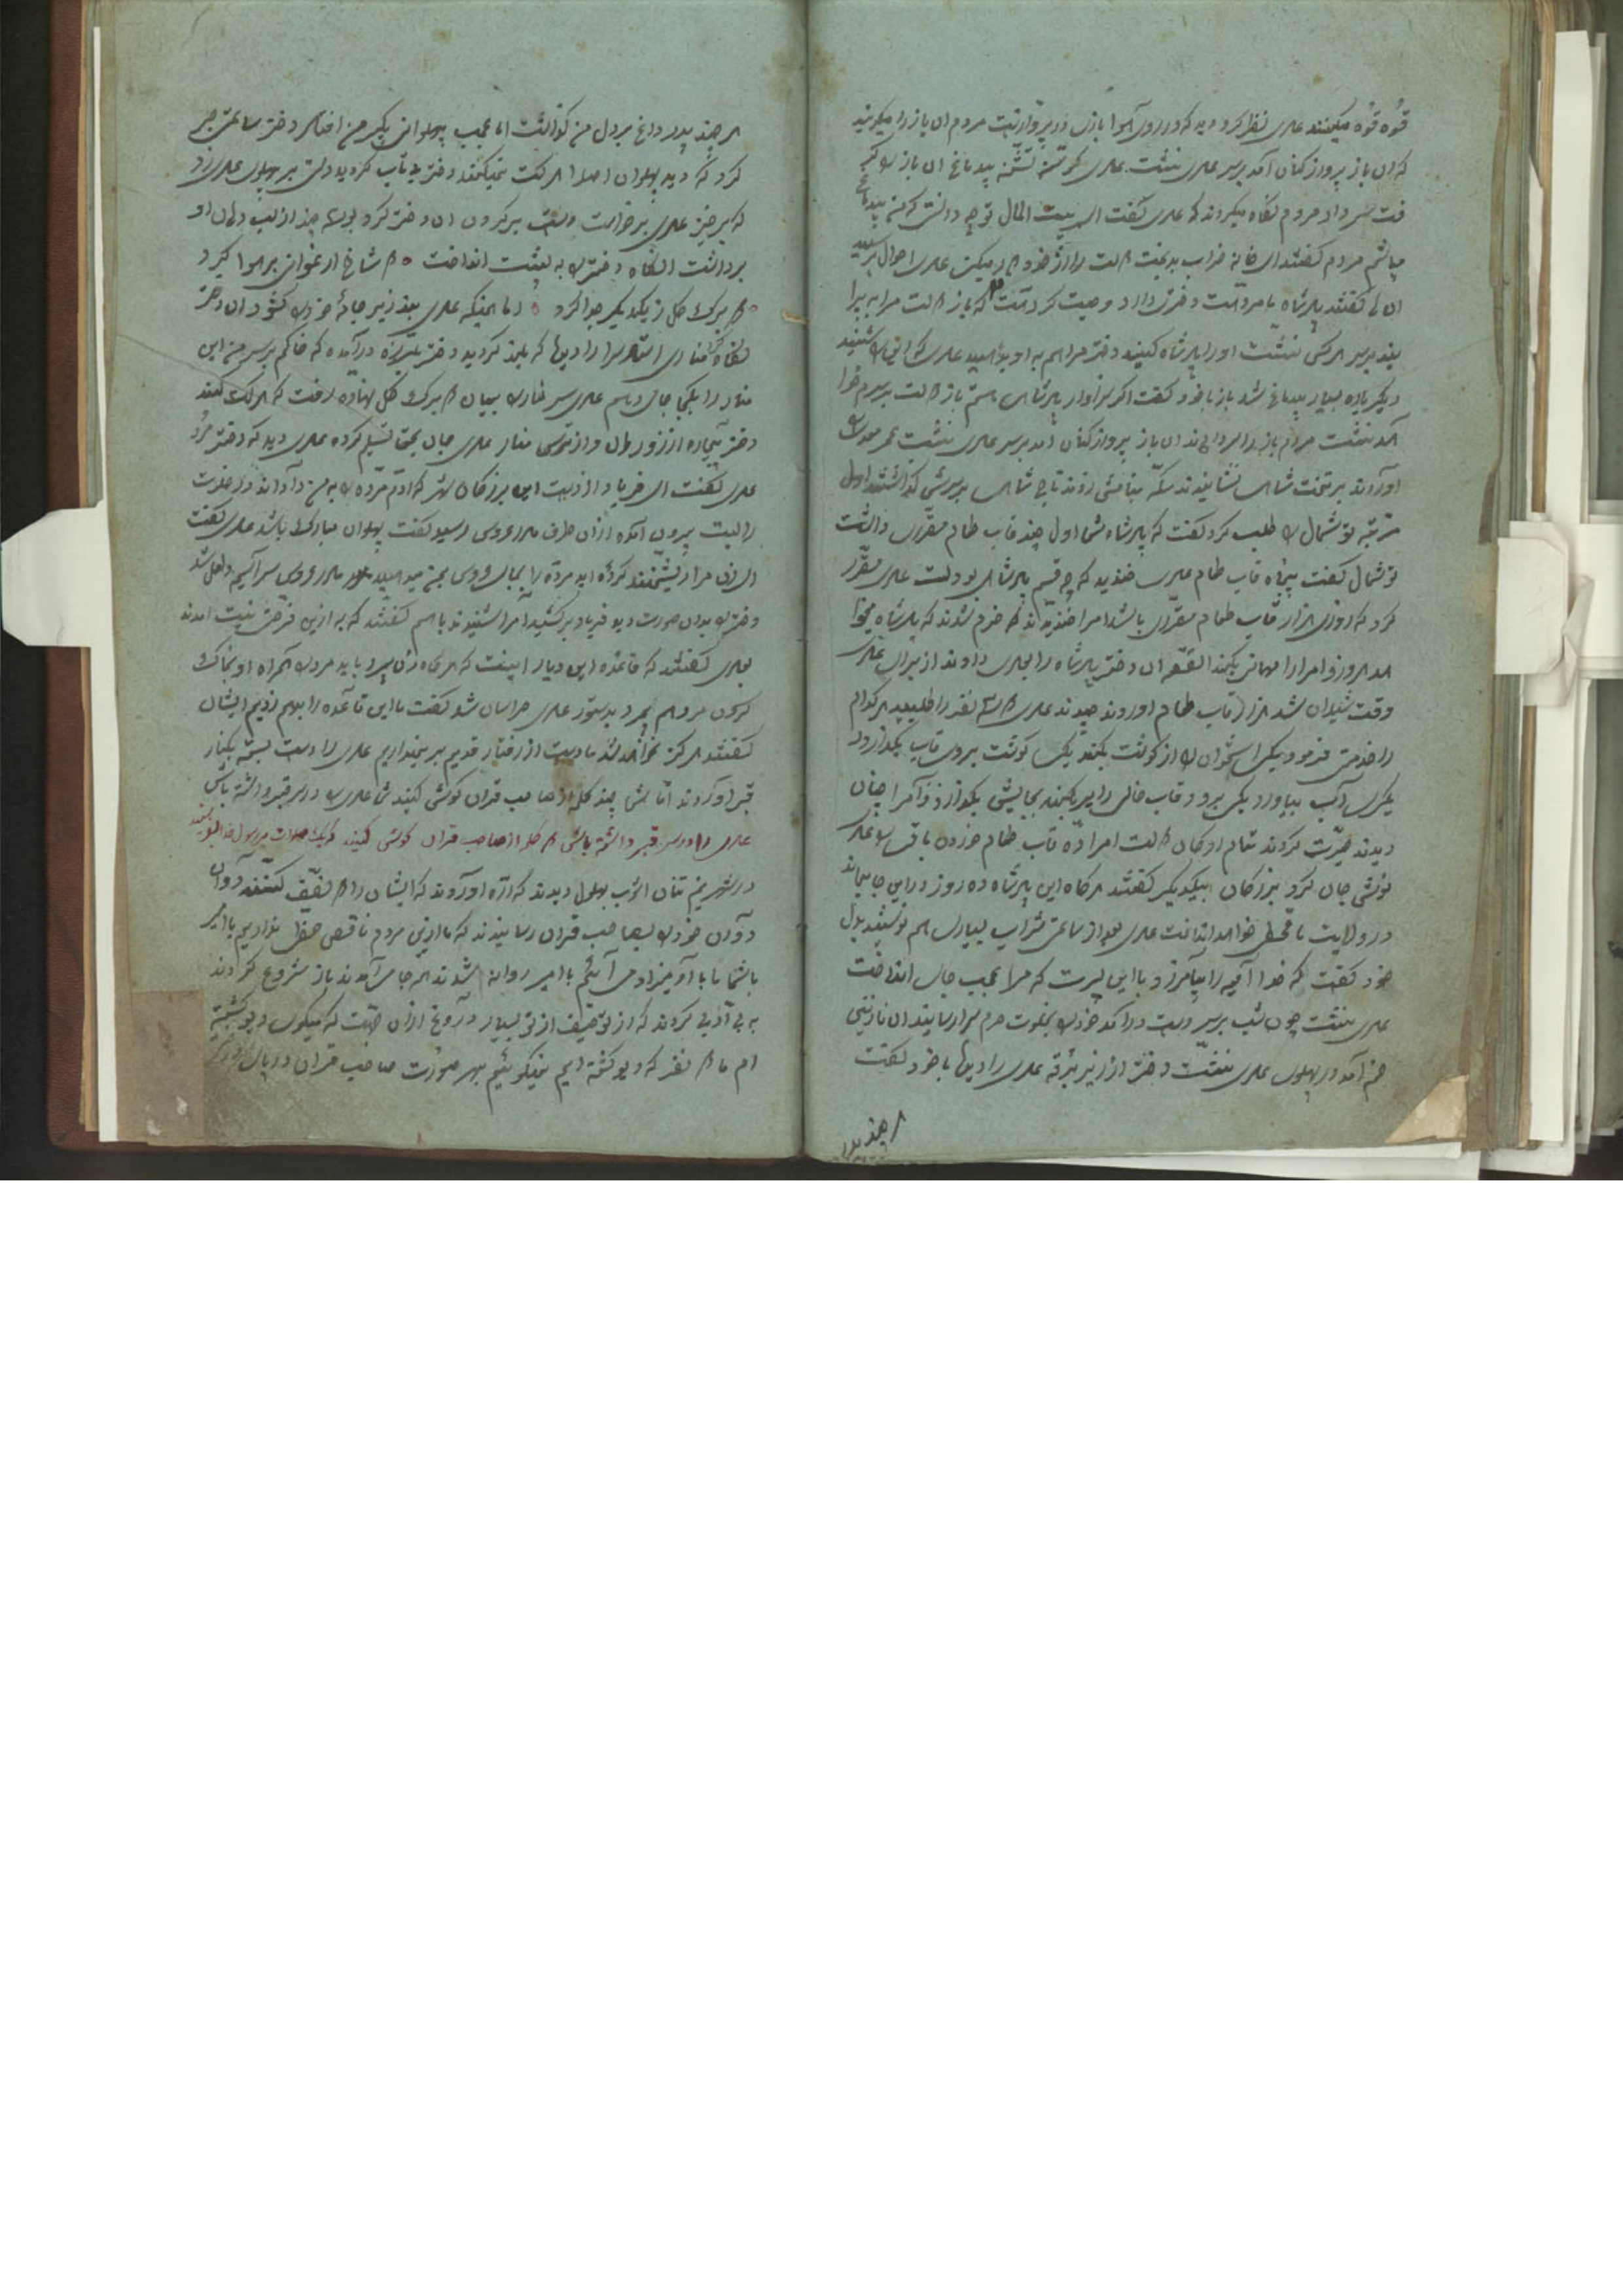 قوه قوه میکنند علی نظر کرد دید که در روی هوا بازی در پرواز است مردم ان باز را میگویند
که ان باز پرواز کنان آمد بر سر علی نشست علی گرسنه تشنه بیدماغ ان باز را
سر داد مردم نگاه میکردند که علی گفت ای بیت المال تو چه دانی که من بیدماغ
میباشم مردم گفتند ای خانه خراب بدبخت دولت را از خود دور میکنی علی احوال پرسید
ان ها گفتند پادشاه ما مرده است دختری دارد وصیت کرده است که باز دولت مرا به پرا
نید بر سر هر کسی نشست او را پادشاه کنید دختر مرا هم به او بدهید علی
دیگر باره بسیار بیدماغ شد باز با خود گفت اگر سزاوار پادشاهی هستم باز دولت بر سرم خواهد
آمد نشست مردم باز را سر دادند ان باز پرواز کنان آمد بر سر علی نشست
آوردند بر تخت شاهی نشانیدند سکه بنامش زدند تاج شاهی بر سرش گذاشتند اول
مرتبه توشمال را طلب کرد گفت که پادشاه شما اول چند قاب طعام مقرری داشت
توشمال گفت پنجاه قاب طعام علی خندید که چه قسم پادشاهی بوده است علی مقرر
کرد که روزی هزار قاب طعام مقرری باشد امرا خندیدند خرم شدند که پادشاه میخوا
هد هر روز امرا را مهمانی بکند القصه ان دختر پادشاه را بعلی دادند از برای علی
وقت شیلان شد هزار قاب طعام اوردند چیدند علی سه نفر را طلبید هر کدام
را خدمتی فرمود یکی استخوان را از گوشت بکند یکی گوشت بروی قاب بگذارد
یکی آب بیاورد یکی برود قاب خالی را پر بکند بجایش بگذارد امرا چنان
دیدند حیرت کردند تمام ارکان دولت امرا ده قاب طعام خوردند باقی را علی
نوش جان کرد بزرگان بیکدیگر گفتند هرگاه این پادشاه ده روز در این جا بماند
در ولایت ما قحطی خواهد انداخت علی بعد از ساعتی شراب بسیاری هم نوشید بدل
خود گفت که خدا آقیه را بیامرزد با این پسرت که مرا عجب جای انداخت
علی نشست چون شب بر سر دست درآمد خود را بخلوت حرم سرا رسانید ان نازنین
هم آمد در پهلوی علی نشست دختر از زیر برقه علی را دید با خود گفت
هر چند پدر
هر چند پدر داغ بر دل من گذاشت اما عجب پهلوانی بگیر من افتاد دختر ساعتی صبر
کرد که دید پهلوان اصلا حرکت نمیکند دختر بیتاب گردید دستی بر پهلوی علی زد
که برخیز علی برخاست دست بر گردن ان دختر کرد بوسه چند از لب دهان او
برداشت انگاه دختر را به پشت انداخت ٥ دو شاخ ارغوانی بر هوا کرد
٥ دو برگ گل ز یکدیگر جدا کرد ٥ اما همینکه علی بند زیر جامه خود را گشود ان دختر
نگاه کرد مناری استاد سرا را دید که بلند گردید دختر بلرزه درآمده که خاکم بر سر من این
منار را بکجا جای دهم علی سر منار را بمیان دو برگ گل نهاده رفت که حرکت کند
دختر بیچاره از زور علی و از ترس منار علی جان بحق تسلیم کرده علی دید که دختر مرد
علی گفت ای فریاد از دست این بزرگان شهر که آدم مرده را به من دادند در خلوت
را بست بیرون آمده از آن طرف مادر عروس رسید گفت پهلوان مبارک باشد علی گفت
ای زن مرا ریشخند کرده اید مرده را بجای عروس بمن میدهید مادر عروس سراسیمه داخل شد
دختر را بدان صورت دید فریاد برکشید امرا شنیدند با هم گفتند که به ازین فرصتی نیست امدند
بعلی گفتند که قاعده این دیار اینست که هرگاه زن بمیرد باید مرد را همراه او بخاک
کردن مرد هم بمیرد بدستور علی هراسان شد گفت ما این قاعده را برهم زدیم ایشان
گفتند هرگز نخواهد شد ما دست از رفتار قدیم بر نمیداریم علی را دست بسته بکنار
قبر اوردند اما شما چند کلمه از صاحب قران گوش کنید شما علی را در سر قبر داشته باش
علی را در سر قبر داشته باشی دو کلمه از صاحب قران گوش کنید که یک صلوات بر رسول خدا بفرستید
در شهر نیم تنان اشوب بهلول دیدند که اره اوردند که ایشان را دو نصف کنند دوان
دوان خود را بصاحب قران رسانیدند که ما ازین مردم ناقص حظ نداریم یا امیر
باشما تا بابا آدمیزادی آییم با امیر روانه شدند هر جا می آمدند باز شروع کردند
به بی آدبی کردند که از توصیف از تو بسیار دروغ ازان جهت که میگوی دیو کشته
ام ما دو نفر که دیو کشته ایم نمیگوئیم بهر صورت صاحب قران